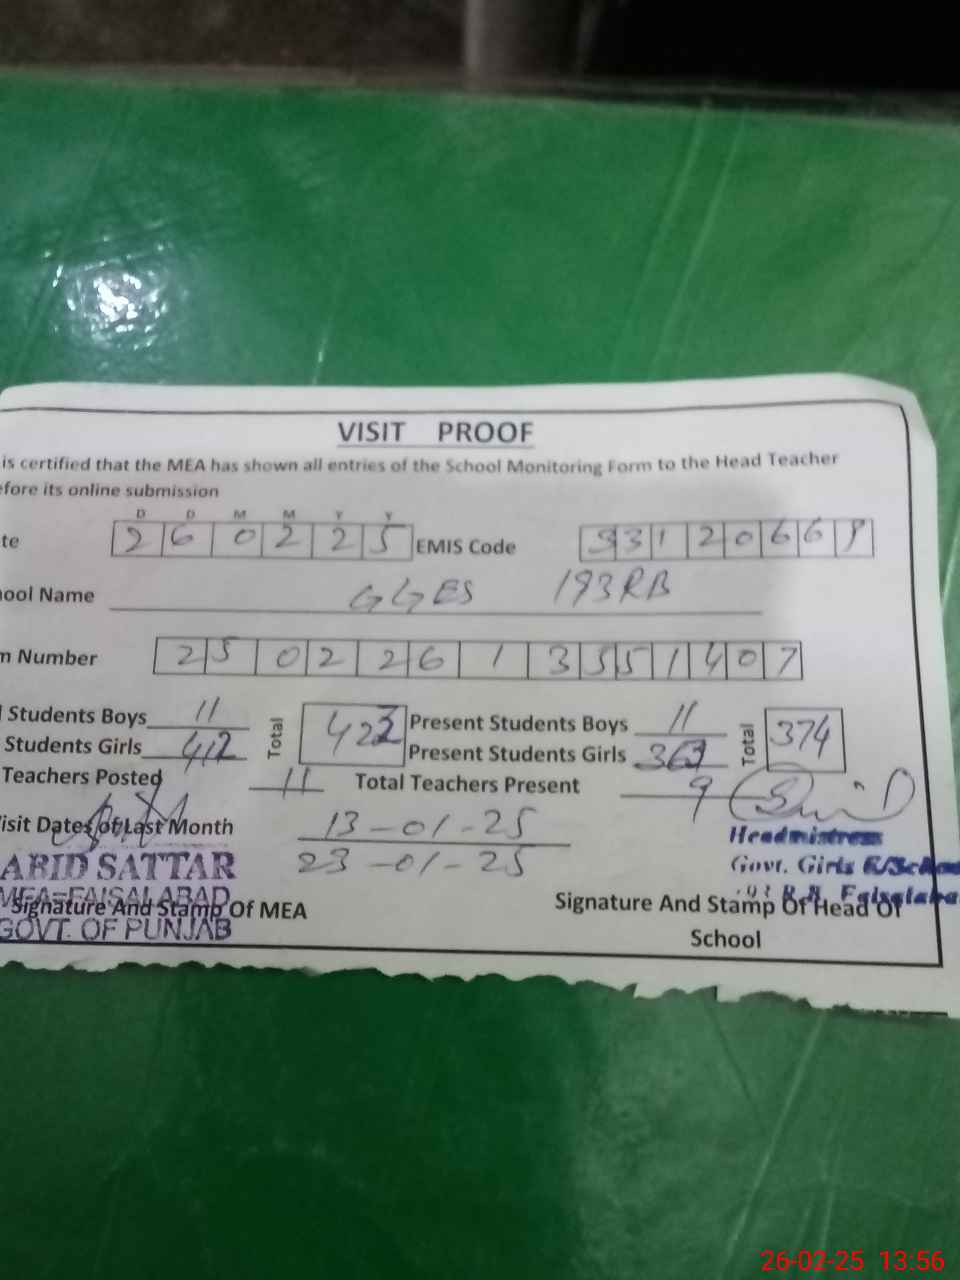 VISIT PROOF
is certified that the MEA has shown all entries of the School Monitoring Form to the Head Teacher
efore its online submission
D D M M Y Y
te 2 6 0 2 2 5 EMIS Code 3 3 1 2 0 6 6
ool Name GGES 193RB
m Number 2 5 0 2 2 6 1 3 5 5 1 4 0 7
Students Boys 11 Total Present Students Boys 11 Total 374
Students Girls 412 Present Students Girls
Teachers Posted 11 Total Teachers Present 9
isit Dates of Last Month 13-01-25
23-01-25
ABID SATTAR
MEA-FAISALABAD
GOVT. OF PUNJAB
Signature And Stamp Of MEA
Headmistress
Govt. Girls E/School
193 R.B. Faisalaba
Signature And Stamp Of Head Of
School
26-02-25 13:56